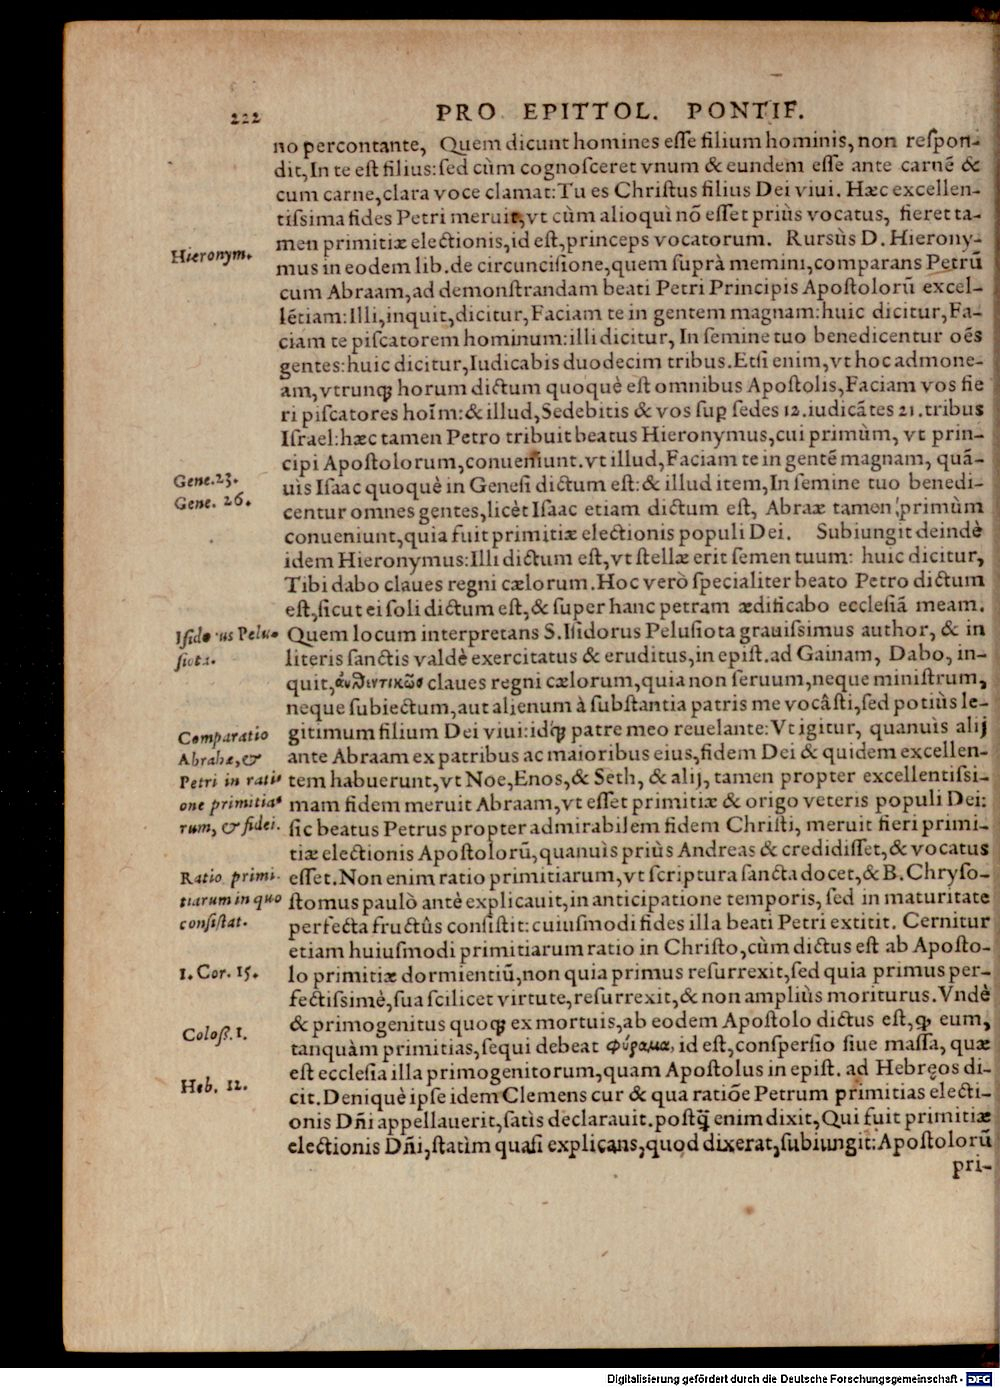 222 PRO EPITTOL. PONTIF.
no percontante, Quem dicunt homines esse filium hominis, non respon-
dit, In te est filius: sed cùm cognosceret vnum & eundem esse ante carnē &
cum carne, clara voce clamat: Tu es Christus filius Dei viui. Hæc excellen-
tissima fides Petri meruit, vt cùm alioqui nō esset priùs vocatus, fieret ta-
men primitiæ electionis, id est, princeps vocatorum. Rursùs D. Hierony-
Hieronym.
mus in eodem lib. de circuncisione, quem suprà memini, comparans Petrū
cum Abraam, ad demonstrandam beati Petri Principis Apostolorū excel-
lētiam: Illi, inquit, dicitur, Faciam te in gentem magnam: huic dicitur, Fa-
ciam te piscatorem hominum: illi dicitur, In semine tuo benedicentur oēs
gentes: huic dicitur, Iudicabis duodecim tribus. Etsi enim, vt hoc admone-
am, vtrunq; horum dictum quoquè est omnibus Apostolis, Faciam vos fie
ri piscatores hoīm: & illud, Sedebitis & vos sup sedes 12. iudicātes 21. tribus
Israel: hæc tamen Petro tribuit beatus Hieronymus, cui primùm, vt prin-
cipi Apostolorum, conueniunt. vt illud, Faciam te in gentē magnam, quā-
Gene. 23.
uìs Isaac quoquè in Genesi dictum est: & illud item, In semine tuo benedi-
Gene. 26.
centur omnes gentes, licèt Isaac etiam dictum est, Abraæ tamen primùm
conueniunt, quia fuit primitiæ electionis populi Dei. Subiungit deindè
idem Hieronymus: Illi dictum est, vt stellæ erit semen tuum: huic dicitur,
Tibi dabo claues regni cælorum. Hoc verò specialiter beato Petro dictum
est, sicut ei soli dictum est, & super hanc petram ædificabo ecclesiā meam.
Isido us Pelu-
siota.
Quem locum interpretans S. Isidorus Pelusiota grauissimus author, & in
literis sanctis valdè exercitatus & eruditus, in epist. ad Gainam, Dabo, in-
quit, αὐθεντικῶς claues regni cælorum, quia non seruum, neque ministrum,
neque subiectum, aut alienum à substantia patris me vocâsti, sed potiùs le-
gitimum filium Dei viui: idq; patre meo reuelante: Vt igitur, quanuìs alij
Comparatio
Abrahæ, &
Petri in rati-
one primitia-
rum, & fidei.
ante Abraam ex patribus ac maioribus eius, fidem Dei & quidem excellen-
tem habuerunt, vt Noe, Enos, & Seth, & alij, tamen propter excellentissi-
mam fidem meruit Abraam, vt esset primitiæ & origo veteris populi Dei:
sic beatus Petrus propter admirabilem fidem Christi, meruit fieri primi-
tiæ electionis Apostolorū, quanuìs priùs Andreas & credidisset, & vocatus
Ratio primi-
tiarum in quo
consistat.
esset. Non enim ratio primitiarum, vt scriptura sancta docet, & B. Chryso-
stomus paulò antè explicauit, in anticipatione temporis, sed in maturitate
perfecta fructûs consistit: cuiusmodi fides illa beati Petri extitit. Cernitur
etiam huiusmodi primitiarum ratio in Christo, cùm dictus est ab Aposto-
1. Cor. 15.
lo primitiæ dormientiū, non quia primus resurrexit, sed quia primus per-
fectissimè, sua scilicet virtute, resurrexit, & non ampliùs moriturus. Vndè
Coloss. 1.
& primogenitus quoq; ex mortuis, ab eodem Apostolo dictus est, ꝙ eum,
tanquàm primitias, sequi debeat φύραμα, id est, conspersio siue massa, quæ
est ecclesia illa primogenitorum, quam Apostolus in epist. ad Hebręos di-
Heb. 12.
cit. Deniquè ipse idem Clemens cur & qua ratiōe Petrum primitias electi-
onis Dñi appellauerit, satìs declarauit. postq̄ enim dixit, Qui fuit primitiæ
electionis Dñi, statìm quasi explicans, quod dixerat, subiungit: Apostolorū
pri-
Digitalisierung gefördert durch die Deutsche Forschungsgemeinschaft - DFG